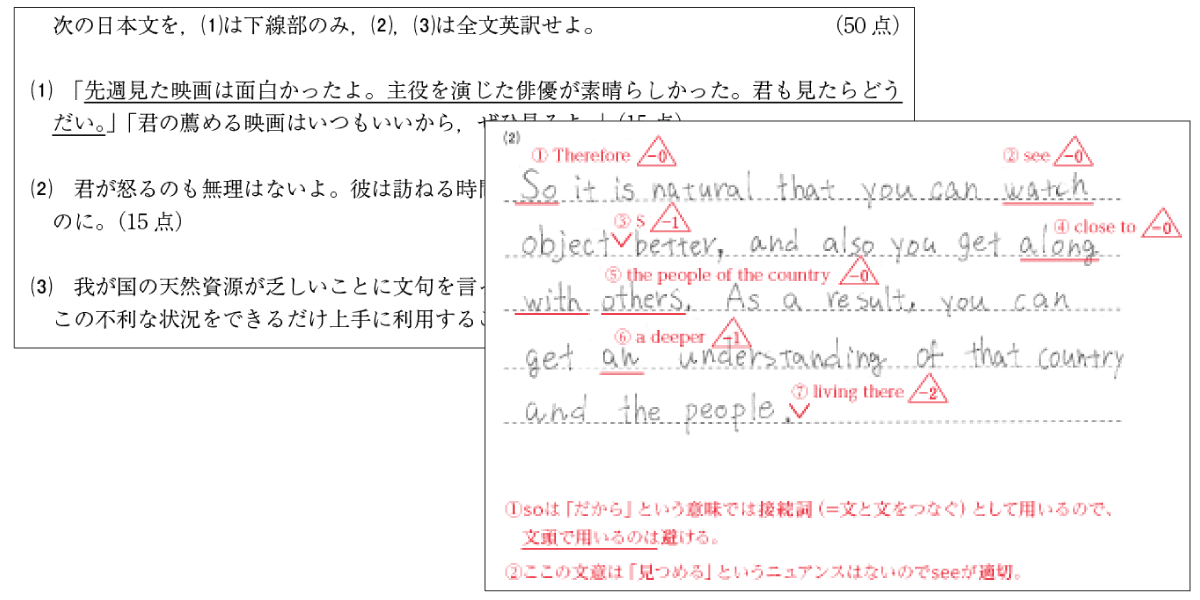 次の日本文を，(1)は下線部のみ，(2)，(3)は全文英訳せよ。 (50 点)
(1) 「先週見た映画は面白かったよ。主役を演じた俳優が素晴らしかった。君も見たらどう
だい。」「君の薦める映画はいつもいいから，
(2) 君が怒るのも無理はないよ。彼は訪ねる時
のに。(15 点)
(3) 我が国の天然資源が乏しいことに文句を言
この不利な状況をできるだけ上手に利用する
(2)
① Therefore -0 ② see -0
So it is natural that you can watch
③ s -1 ④ close to -0
object better, and also you get along
⑤ the people of the country -0
with others. As a result, you can
⑥ a deeper -1
get an understanding of that country
⑦ living there -2
and the people.
①soは「だから」という意味では接続詞（=文と文をつなぐ）として用いるので、
文頭で用いるのは避ける。
②ここの文意は「見つめる」というニュアンスはないのでseeが適切。